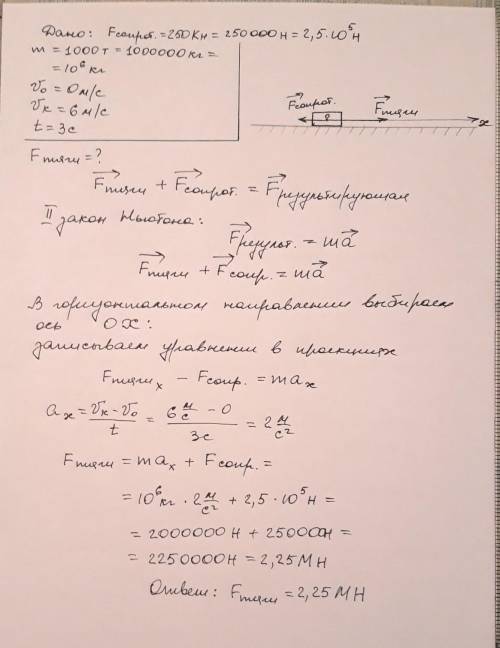 Дано: Fсопрот. = 250 Кн = 250000 Н = 2,5·10⁵ Н
m = 1000 т = 1000000 кг =
= 10⁶ кг
v₀ = 0 м/с
vк = 6 м/с
t = 3с
Fсопрот. Fтяги x
Fтяги = ?
Fтяги + Fсопрот. = Fрезультирующая
II закон Ньютона:
Fрезульт. = ma
Fтяги + Fсопр. = ma
В горизонтальном направлении выбираем
ось OX:
записываем уравнении в проекциях
Fтяги x - Fсопр. = max
ax = (vк - v₀)/t = (6 м/с - 0)/3с = 2 м/с²
Fтяги = max + Fсопр. =
= 10⁶ кг · 2 м/с² + 2,5 · 10⁵ Н =
= 2000000 Н + 250000Н =
= 2250000 Н = 2,25 МН
Ответ: Fтяги = 2,25 МН